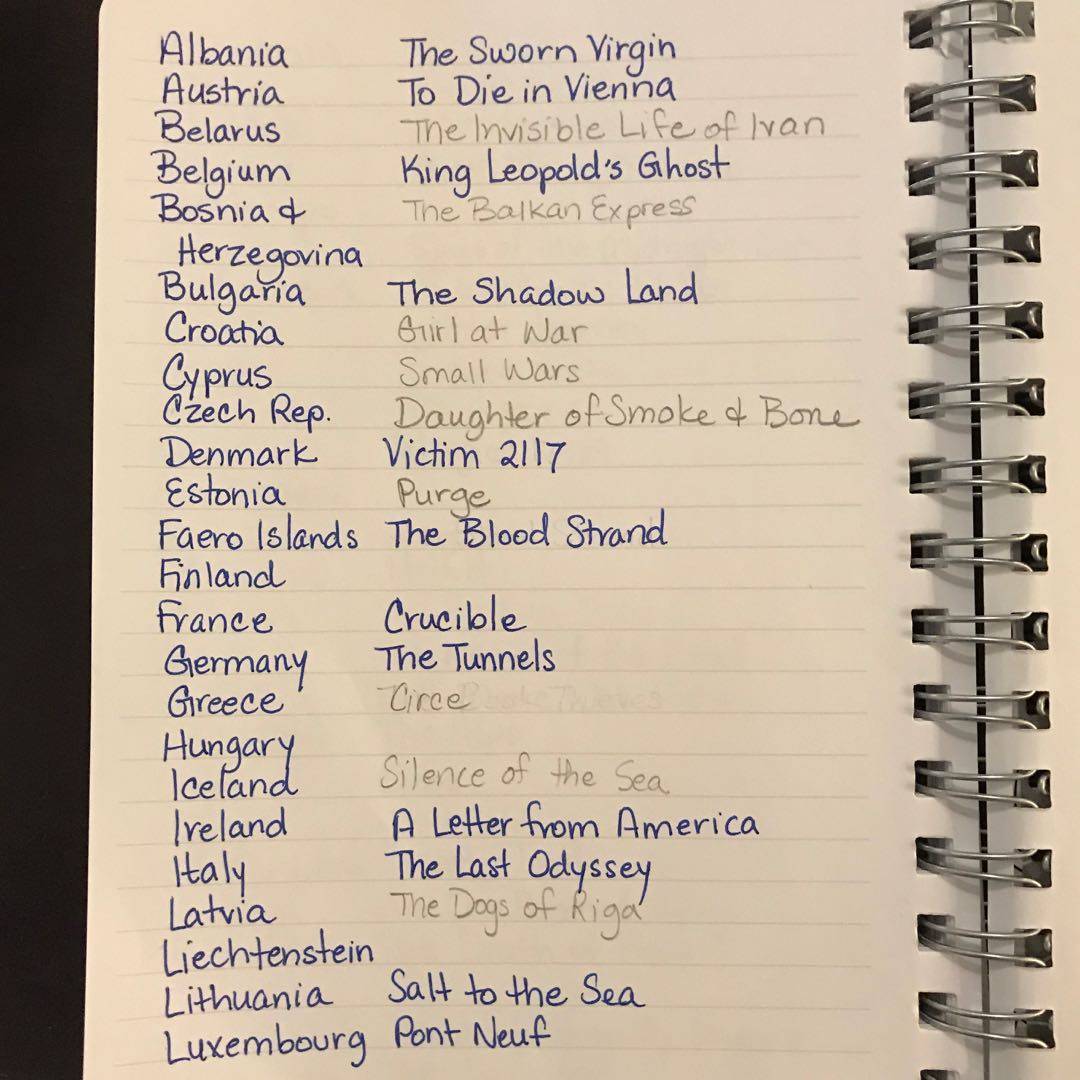 Albania The Sworn Virgin
Austria To Die in Vienna
Belarus The Invisible Life of Ivan
Belgium King Leopold's Ghost
Bosnia & The Balkan Express
Herzegovina
Bulgaria The Shadow Land
Croatia Girl at War
Cyprus Small Wars
Czech Rep. Daughter of Smoke & Bone
Denmark Victim 2117
Estonia Purge
Faero Islands The Blood Strand
Finland
France Crucible
Germany The Tunnels
Greece Circe
Hungary
Iceland Silence of the Sea
Ireland A Letter from America
Italy The Last Odyssey
Latvia The Dogs of Riga
Liechtenstein
Lithuania Salt to the Sea
Luxembourg Pont Neuf